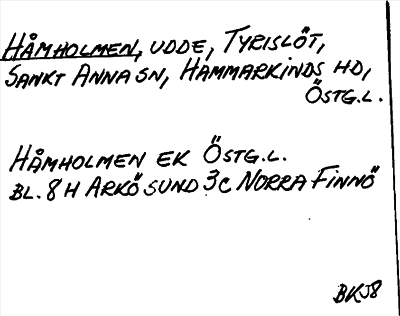 HÅMHOLMEN, UDDE, TYRISLÖT,
SANKT ANNA SN, HAMMARKINDS HD,
ÖSTG.L.
HÅMHOLMEN EK ÖSTG.L.
BL. 8 H ARKÖSUND 3C NORRA FINNÖ
BKJ8